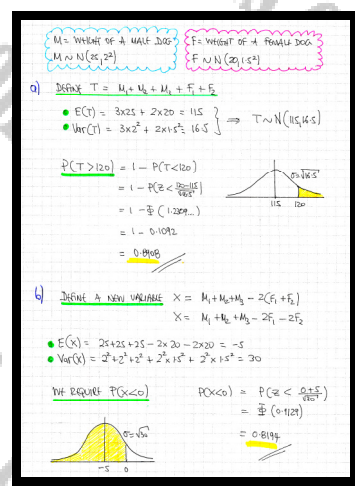 M = WEIGHT OF A MALE DOG
M ~ N(25,2²)
F = WEIGHT OF A FEMALE DOG
F ~ N(20,1.5²)
a) DEFINE T = M₁ + M₂ + M₃ + F₁ + F₂
• E(T) = 3×25 + 2×20 = 115
• Var(T) = 3×2² + 2×1.5² = 16.5
⇒ T ~ N(115,16.5)
P(T>120) = 1 - P(T<120)
= 1 - P(Z < (120-115)/√16.5)
= 1 - Φ(1.2309...)
= 1 - 0.1092
= 0.8908
σ=√16.5
115 120
b) DEFINE A NEW VARIABLE X = M₁+M₂+M₃ - 2(F₁+F₂)
X = M₁+M₂+M₃ - 2F₁ - 2F₂
• E(X) = 25+25+25 - 2×20 - 2×20 = -5
• Var(X) = 2²+2²+2² + 2²×1.5² + 2²×1.5² = 30
WE REQUIRE P(X<0)
P(X<0) = P(Z < (0+5)/√30)
= Φ(0.9129)
= 0.8194
σ=√30
-5 0